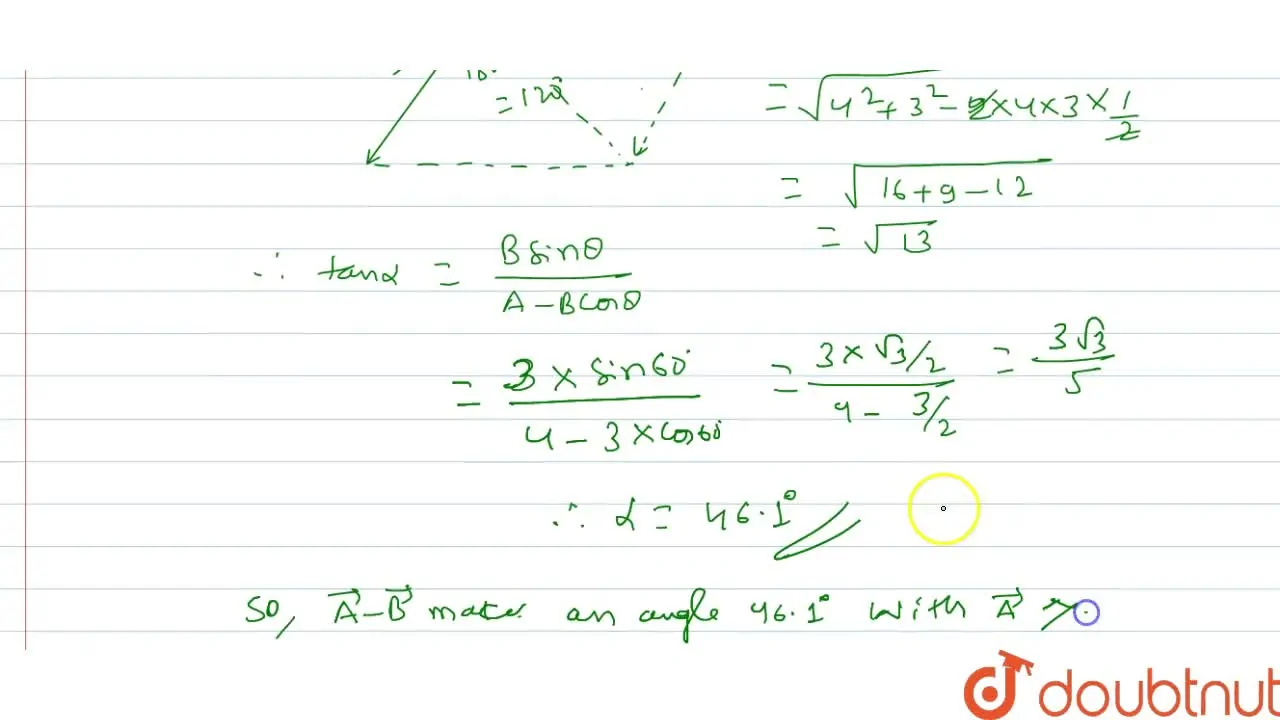 = 120°
= √4² + 3² - 2×4×3×1/2
= √16+9-12
= √13
∴ tanα = Bsinθ / A-Bcosθ
= 3 × sin60° / 4 - 3×cos60° = 3×√3/2 / 4 - 3/2 = 3√3 / 5
∴ α = 46.1°
So, A⃗-B⃗ makes an angle 46.1° with A⃗
doubtnut